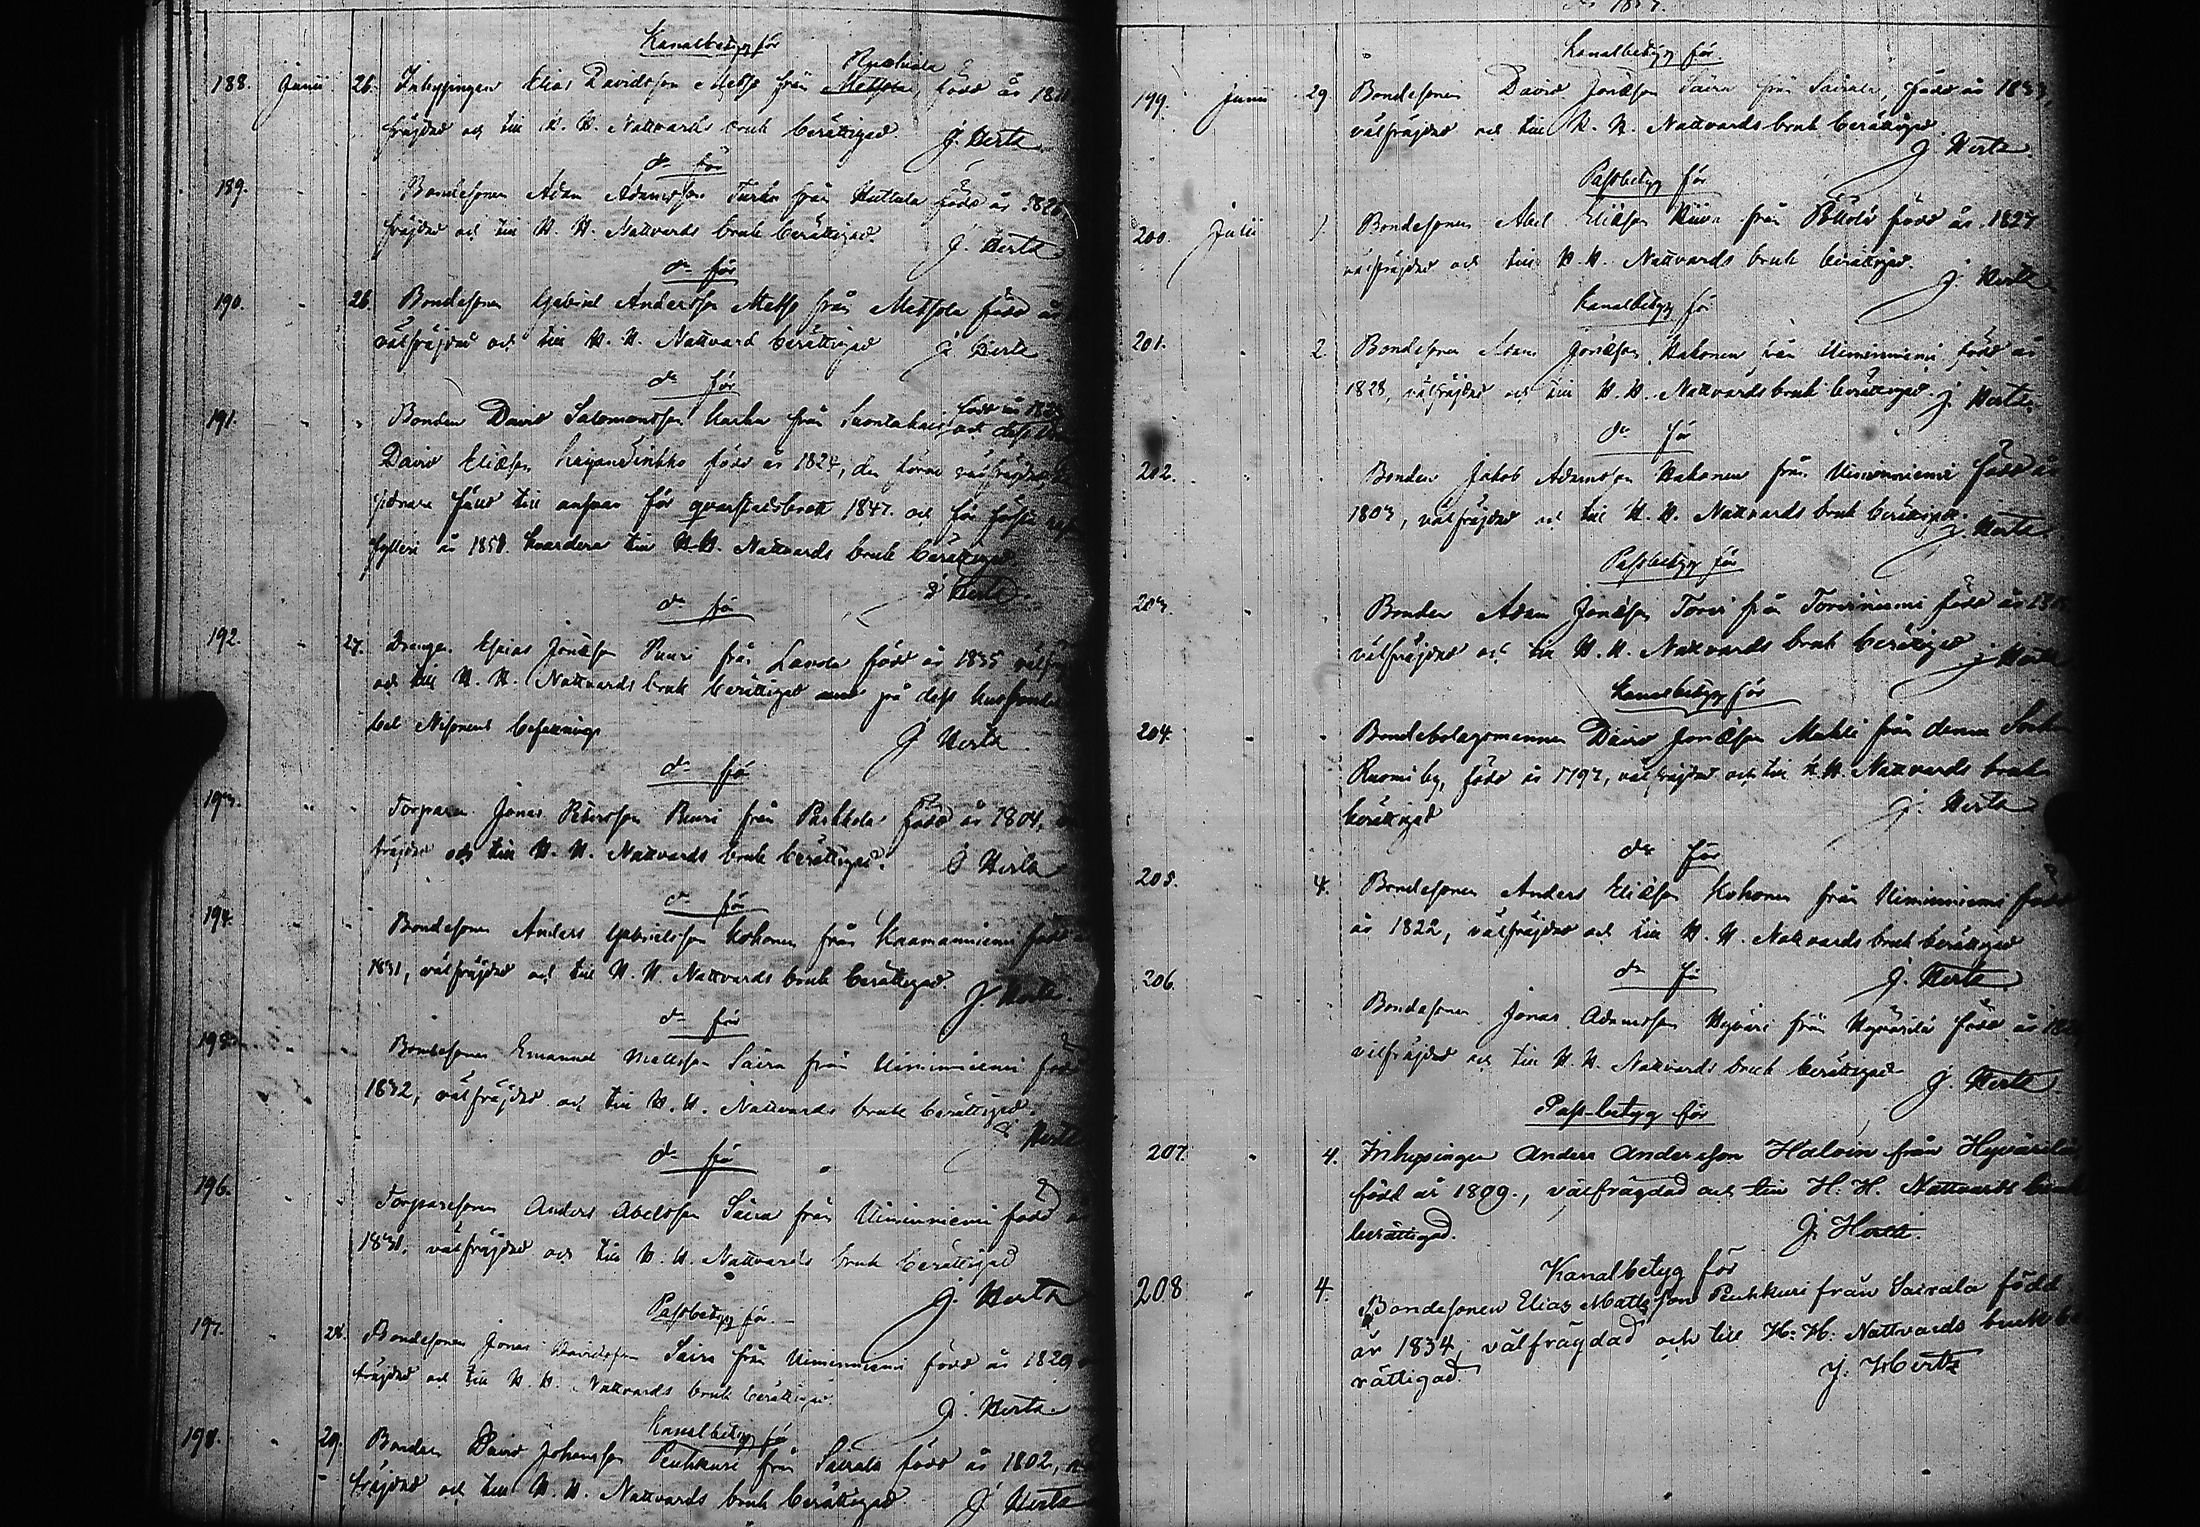 Kanalbetyg för
188. Junii 26. Inhysingen Elias Davidsson Metso från Metsola född år
fräjdad och till H. H. Nattvards bruk berättigad. J. Hertz
do för
189. Bondesonen Adam Adamsson Turki från Huttula född år
fräjdad och till H. H. Nattvards bruk berättigad. J. Hertz
do för
190. 26. Bondesonen Gabriel Andersson Metso från Metsola född år
välfräjdad och till H. H. Nattvard berättigad J. Hertz
do för
191. Bonden David Salomonsson Karhu från född år
David Eliæson född år 1824, den förre välfräjdad
sednare fälld till ansvar för qvarstadsbrott 1847. och för första
fylleri år 1851. hvardera till H. H. Nattvards bruk berättigad.
J. Hertz
do för
192. 27. Drängen Esaias Jonæson Puuri från Lavola född år 1835
och till H. H. Nattvards bruk berättigad på dess
J. Hertz
do för
193. Torparen Jonas Petersson Puuri från Parkkola född år 1804,
fräjdad och till H. H. Nattvards bruk berättigad. J. Hertz
do för
194. Bondesonen Anders Gabrielsson Kohonen från Knamanniemi född
1831, välfräjdad och till H. H. Nattvards bruk berättigad J. Hertz.
do för
195. Bondesonen Emanuel Mattsson Saira från Uiminniemi född
1832, välfräjdad och till H. H. Nattvards bruk berättigad.
J. Hertz
do för
196. Torparesonen Anders Abelsson Saira från Uiminniemi född
1831, välfräjdad och till H. H. Nattvards bruk berättigad
J. Hertz
Passbetyg för
197. 28. Bondesonen Jonas Davidsson Saira från Uiminniemi född år 1829
fräjdad och till H. H. Nattvards bruk berättigad.
J. Hertz.
Kanalbetyg för
198. 29. Bonden David Johansson Peuhkuri från Sairala född år 1802,
fräjdad och till H. H. Nattvards bruk berättigad J. Hertz
Kanalbetyg för
199. Junii 29 Bondesonen David Jonæson Saira från Sairala, född år 1833,
välfräjdad och till H. H. Nattvards bruk berättigad.
J. Hertz.
Passbetyg för
200. Julii 1 Bondesonen Abel Eliæson Kiuru från Pöllölä född år 1827
välfräjdad och till H. H. Nattvards bruk berättigad.
J. Hertz
Kanalbetyg för
201. 2 Bondesonen Adam Jonæson Kakonen från Uiminniemi född år
1828, välfräjdad och till H. H. Nattvards bruk berättigad. J. Hertz.
do för
202. Bonden Jakob Adamsson Kakonen från Uiminniemi född år
1803, välfräjdad och till H. H. Nattvards bruk berättigad.
J. Hertz
Passbetyg för
203. Bonden Adam Jonæson Torvi från Torviniemi född år
välfräjdad och till H. H. Nattvards bruk berättigad J. Hertz
Kanalbetyg för
204. Bondebolagsmannen David Jonæson från denna Sockens
Kuomi by, född år 1797, välfräjdad och till H. H. Nattvards bruk
berättigad
J. Hertz
do för
205. 4. Bondesonen Anders Eliæson Kohonen från Uiminniemi född
år 1822, välfräjdad och till H. H. Nattvards bruk berättigad
J. Hertz.
do för
206. Bondesonen Jonas Adamsson Hyväri från Hyvärilä född år
välfräjdad och till H. H. Nattvards bruk berättigad
J. Hertz
Pass-betyg för
207. 4. Inhysingen Anders Andersson Haloin från Hyvärilä,
född år 1809., välfrägdad och till H. H. Nattvards bruk
berättigad. J. Hertz.
Kanalbetyg för
208 4. Bondesonen Elias Mattsson Peuhkuri från Sairala född
år 1834, välfrägdad och till H. H. Nattvards bruk be
rättigad. J. Hertz